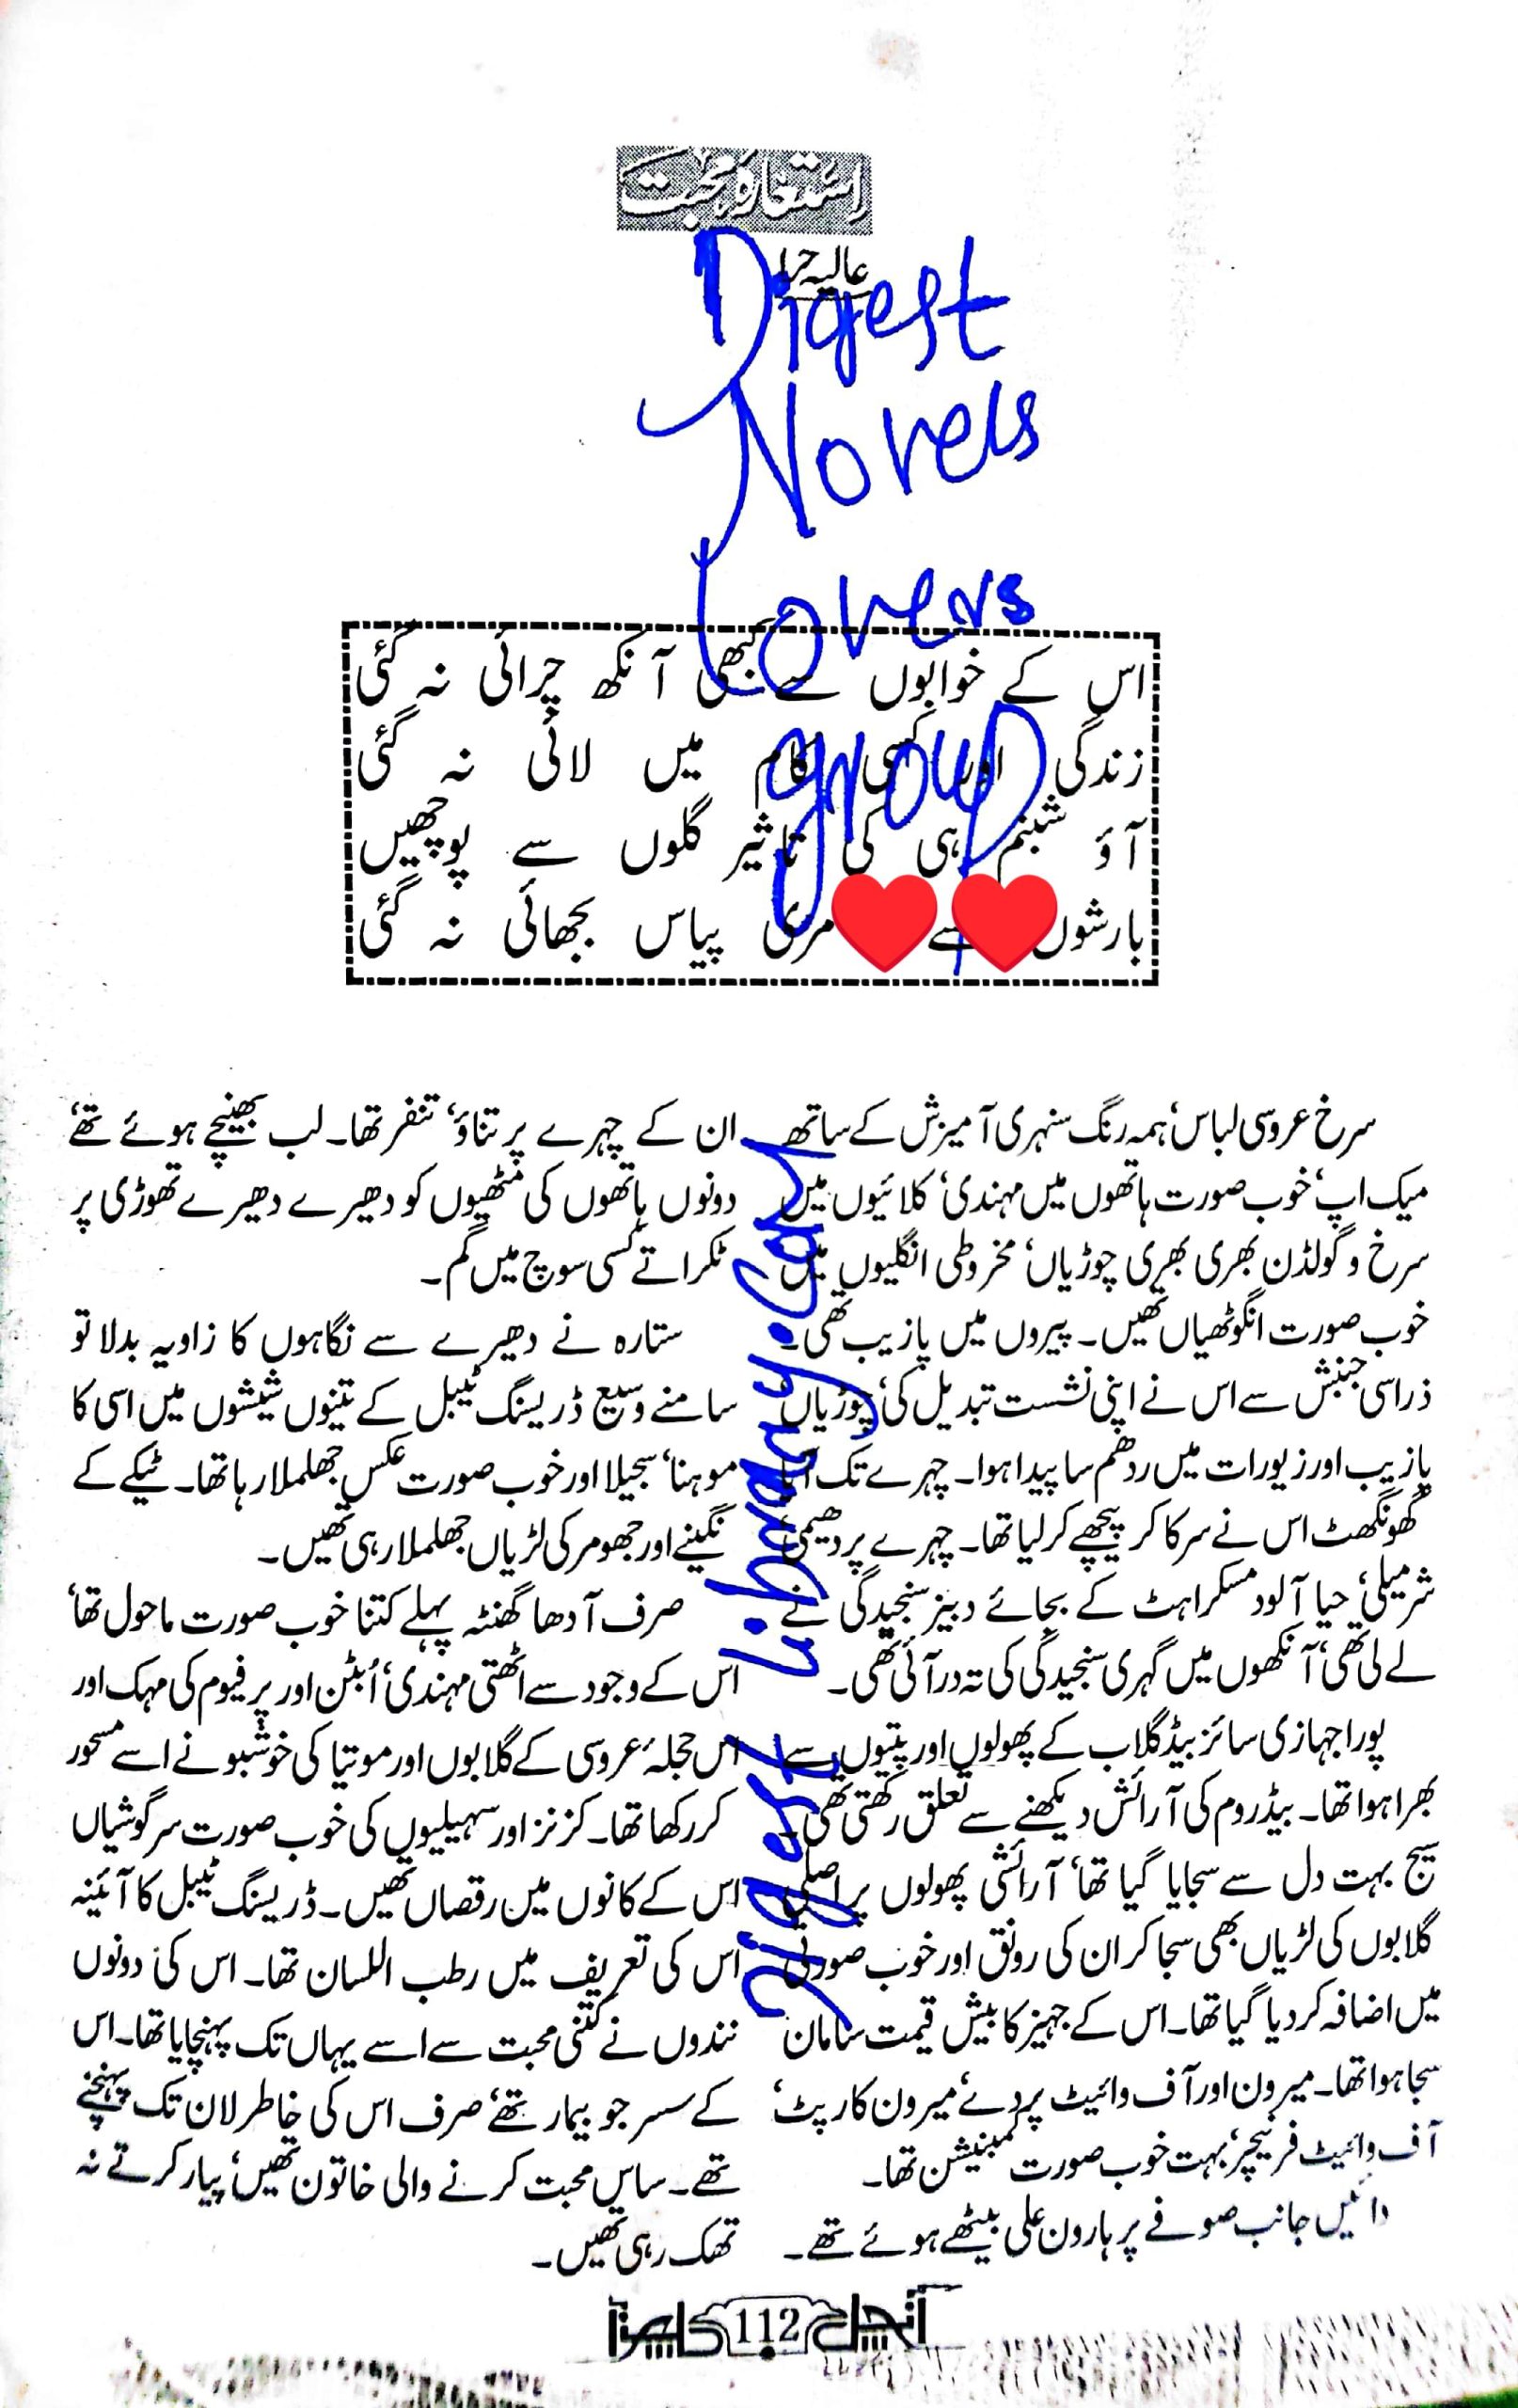 استعارہ محبت
عالیہ حرا
Digest
Novels
Lovers
group
اس کے خوابوں سے کبھی آنکھ چرائی نہ گئی
زندگی اور کسی کام میں لائی نہ گئی
آؤ شبنم ہی کی تاثیر گلوں سے پوچھیں
بارشوں سے مری پیاس بجھائی نہ گئی
سرخ عروسی لباس، ہمہ رنگ سنہری آمیزش کے ساتھ
میک اپ، خوب صورت ہاتھوں میں مہندی، کلائیوں میں
سرخ و گولڈن بھری بھری چوڑیاں، مخروطی انگلیوں میں
خوب صورت انگوٹھیاں تھیں۔ پیروں میں پازیب تھی۔
ذرا سی جنبش سے اس نے اپنی نشست تبدیل کی، چوڑیاں
پازیب اور زیورات میں ردھم سا پیدا ہوا۔ چہرے تک آیا
گھونگھٹ اس نے سرکا کر پیچھے کر لیا تھا۔ چہرے پر دھیمی
شرمیلی، حیا آلود مسکراہٹ کے بجائے دبیز سنجیدگی نے
لے لی تھی، آنکھوں میں گہری سنجیدگی کی تہ در آئی تھی۔
پورا جہازی سائز بیڈ گلاب کے پھولوں اور پتیوں سے
بھرا ہوا تھا۔ بیڈروم کی آرائش دیکھنے سے تعلق رکھتی تھی۔
سیج بہت دل سے سجایا گیا تھا، آرائشی پھولوں پر اصلی
گلابوں کی لڑیاں بھی سجا کر ان کی رونق اور خوب صورتی
میں اضافہ کر دیا گیا تھا۔ اس کے جہیز کا بیش قیمت سامان
سجا ہوا تھا۔ میرون اور آف وائیٹ پردے، میرون کارپٹ،
آف وائیٹ فرنیچر، بہت خوب صورت کمبنیشن تھا۔
دائیں جانب صوفے پر ہارون علی بیٹھے ہوئے تھے۔
ان کے چہرے پر تناؤ، تنفر تھا۔ لب بھینچے ہوئے تھے،
دونوں ہاتھوں کی مٹھیوں کو دھیرے دھیرے تھوڑی پر
ٹکراتے کسی سوچ میں گم۔
ستارہ نے دھیرے سے نگاہوں کا زاویہ بدلا تو
سامنے وسیع ڈریسنگ ٹیبل کے تینوں شیشوں میں اسی کا
موہنا، سجیلا اور خوب صورت عکس جھلملا رہا تھا۔ ٹیکے کے
نگینے اور جھومر کی لڑیاں جھلملا رہی تھیں۔
صرف آدھا گھنٹہ پہلے کتنا خوب صورت ماحول تھا،
اس کے وجود سے اٹھتی مہندی، اُبٹن اور پرفیوم کی مہک اور
اس حجلۂ عروسی کے گلابوں اور موتیا کی خوشبو نے اسے مسحور
کر رکھا تھا۔ کزنز اور سہیلیوں کی خوب صورت سرگوشیاں
اس کے کانوں میں رقصاں تھیں۔ ڈریسنگ ٹیبل کا آئینہ
اس کی تعریف میں رطب اللسان تھا۔ اس کی دونوں
نندوں نے کتنی محبت سے اسے یہاں تک پہنچایا تھا۔ اس
کے سسر جو بیمار تھے، صرف اس کی خاطر لان تک پہنچے
تھے۔ ساس محبت کرنے والی خاتون تھیں، پیار کرتے نہ
تھک رہی تھیں۔
Digest Library.Com
آنچل 112